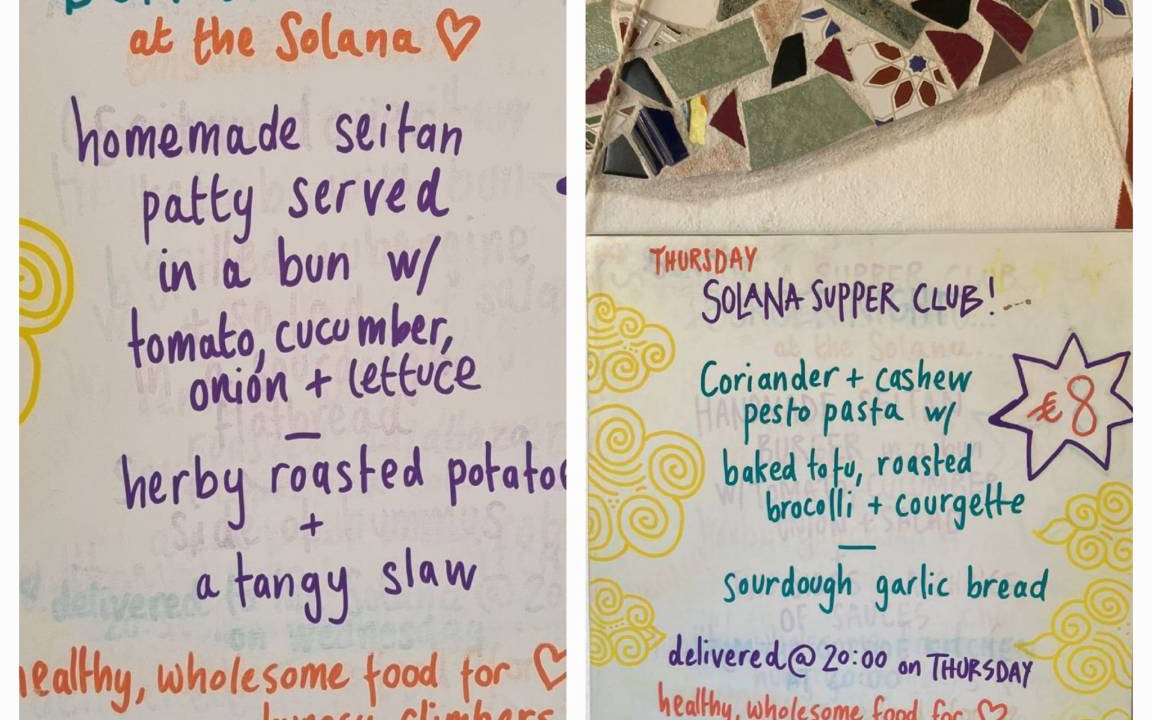 at the Solana
homemade seitan
patty served
in a bun w/
tomato, cucumber,
onion + lettuce
herby roasted potato
+
a tangy slaw
healthy, wholesome food for
hungry climbers
THURSDAY
SOLANA SUPPER CLUB!...
Coriander + cashew
pesto pasta w/
€8
baked tofu, roasted
brocolli + courgette
sourdough garlic bread
delivered @ 20:00 on THURSDAY
healthy, wholesome food for